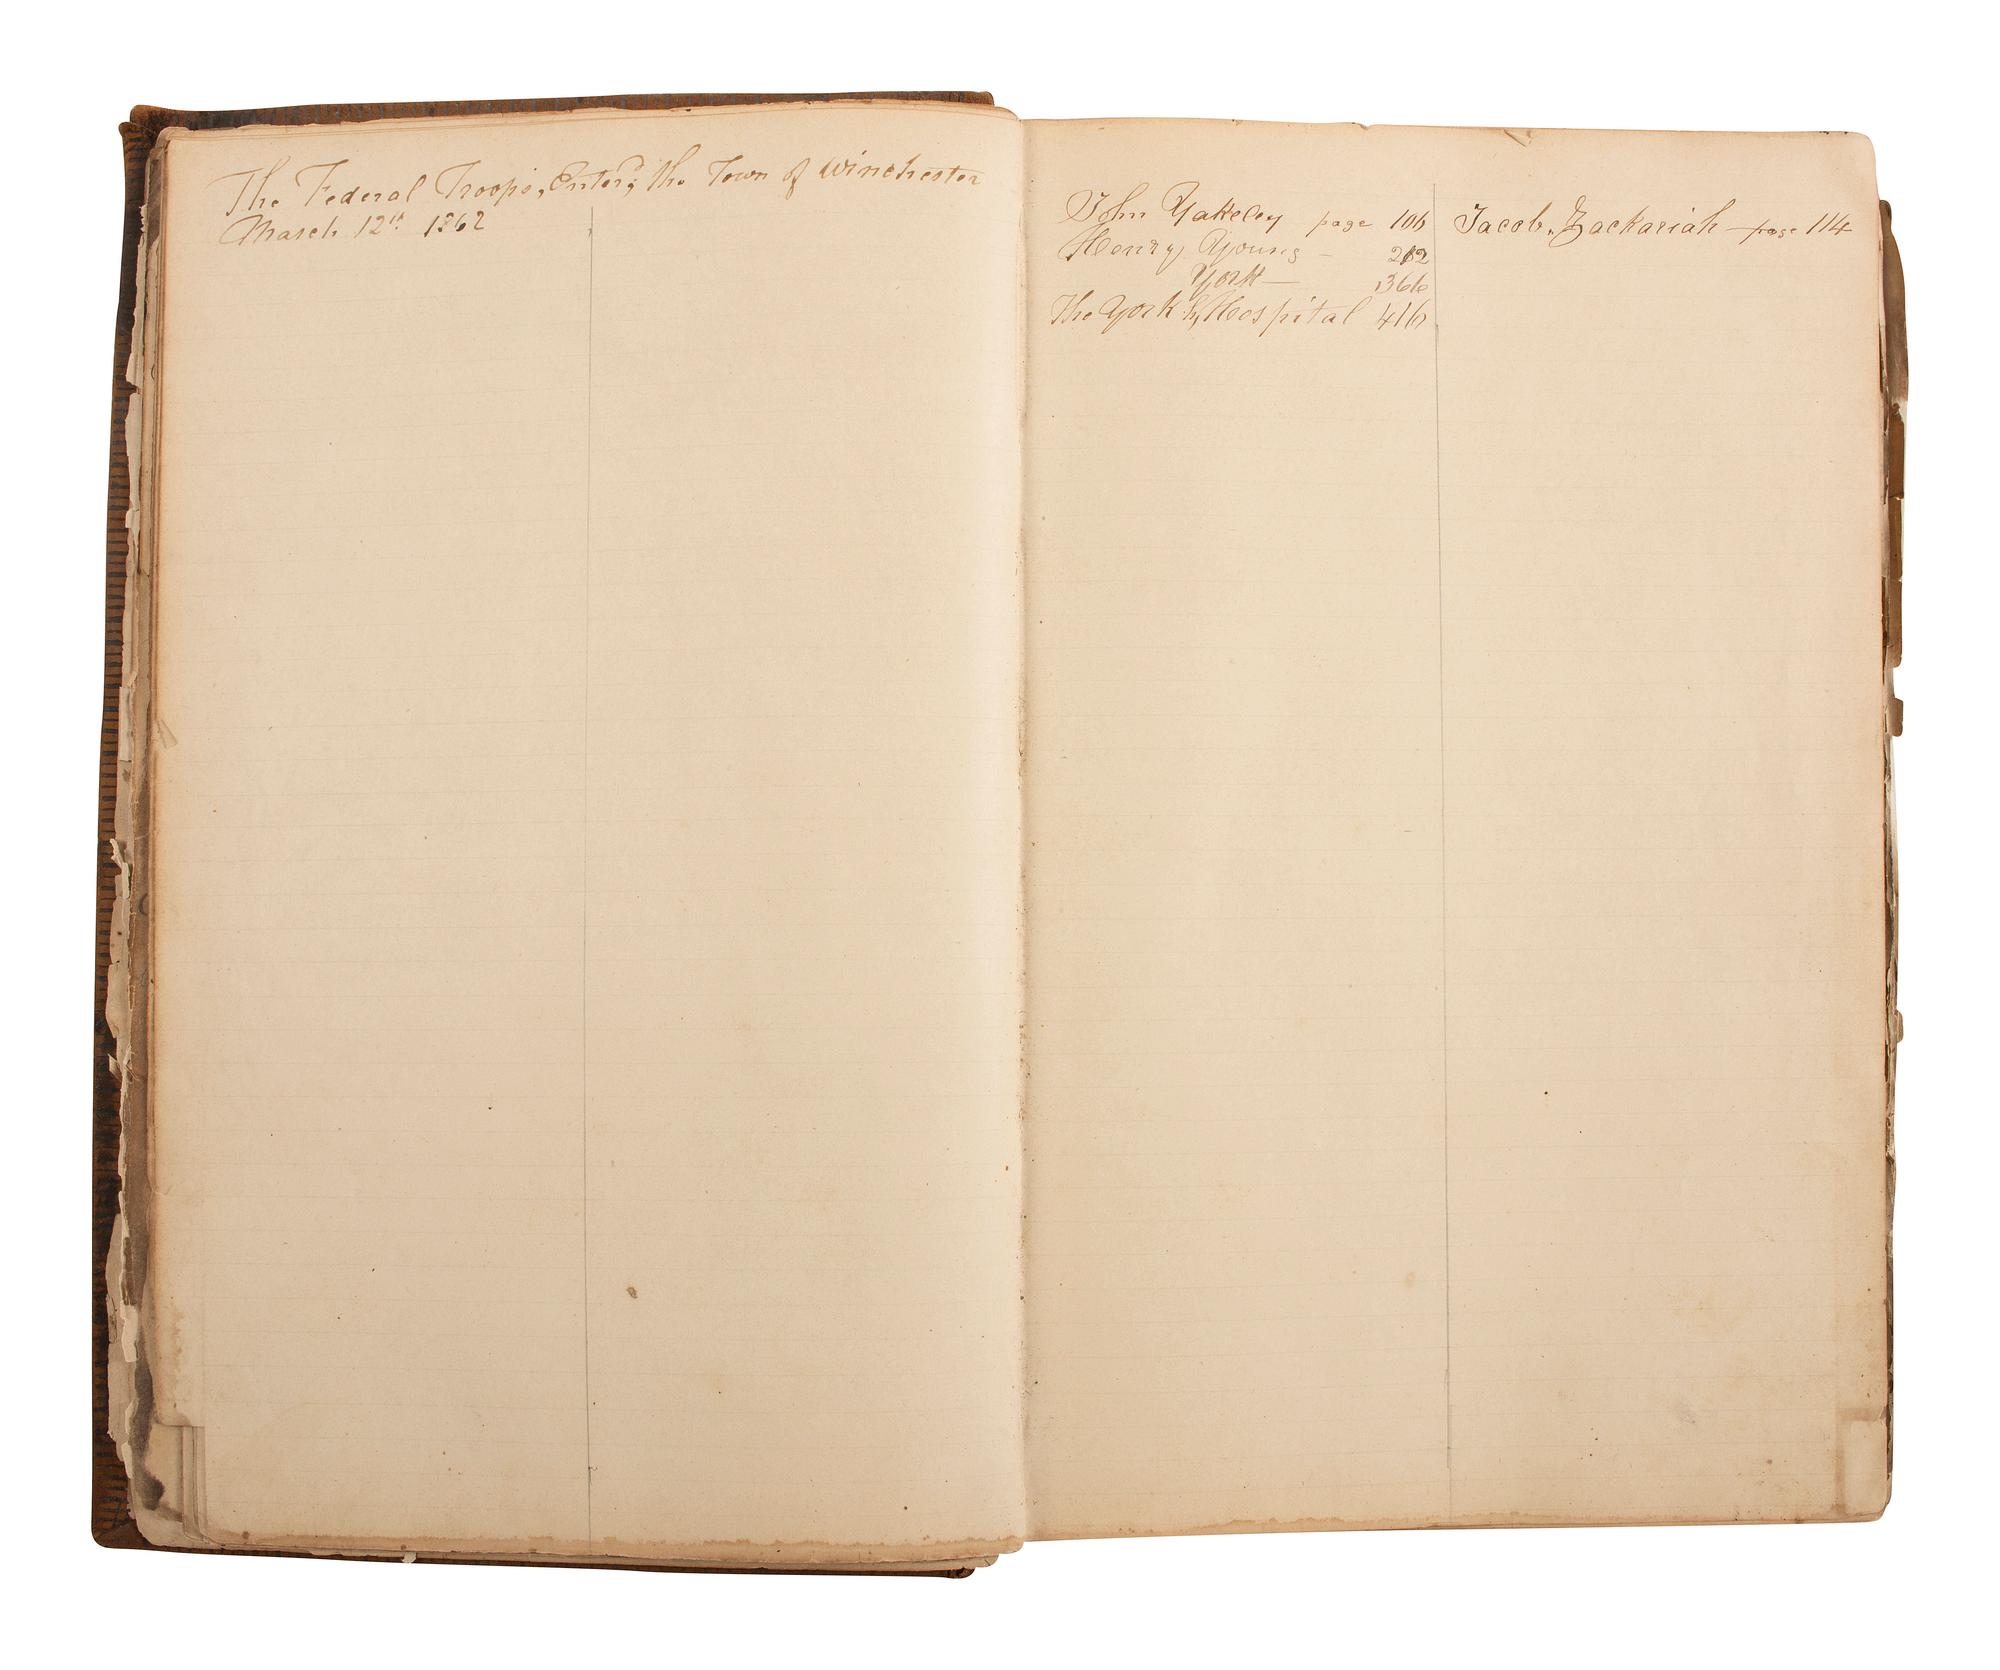 The Federal Troops, Enterd, the Town of Winchester
March 12th 1862
John Yakeley page 106
Henry Young - 212
York - 366
The York Hospital 416
Jacob. Zackariah - page 114